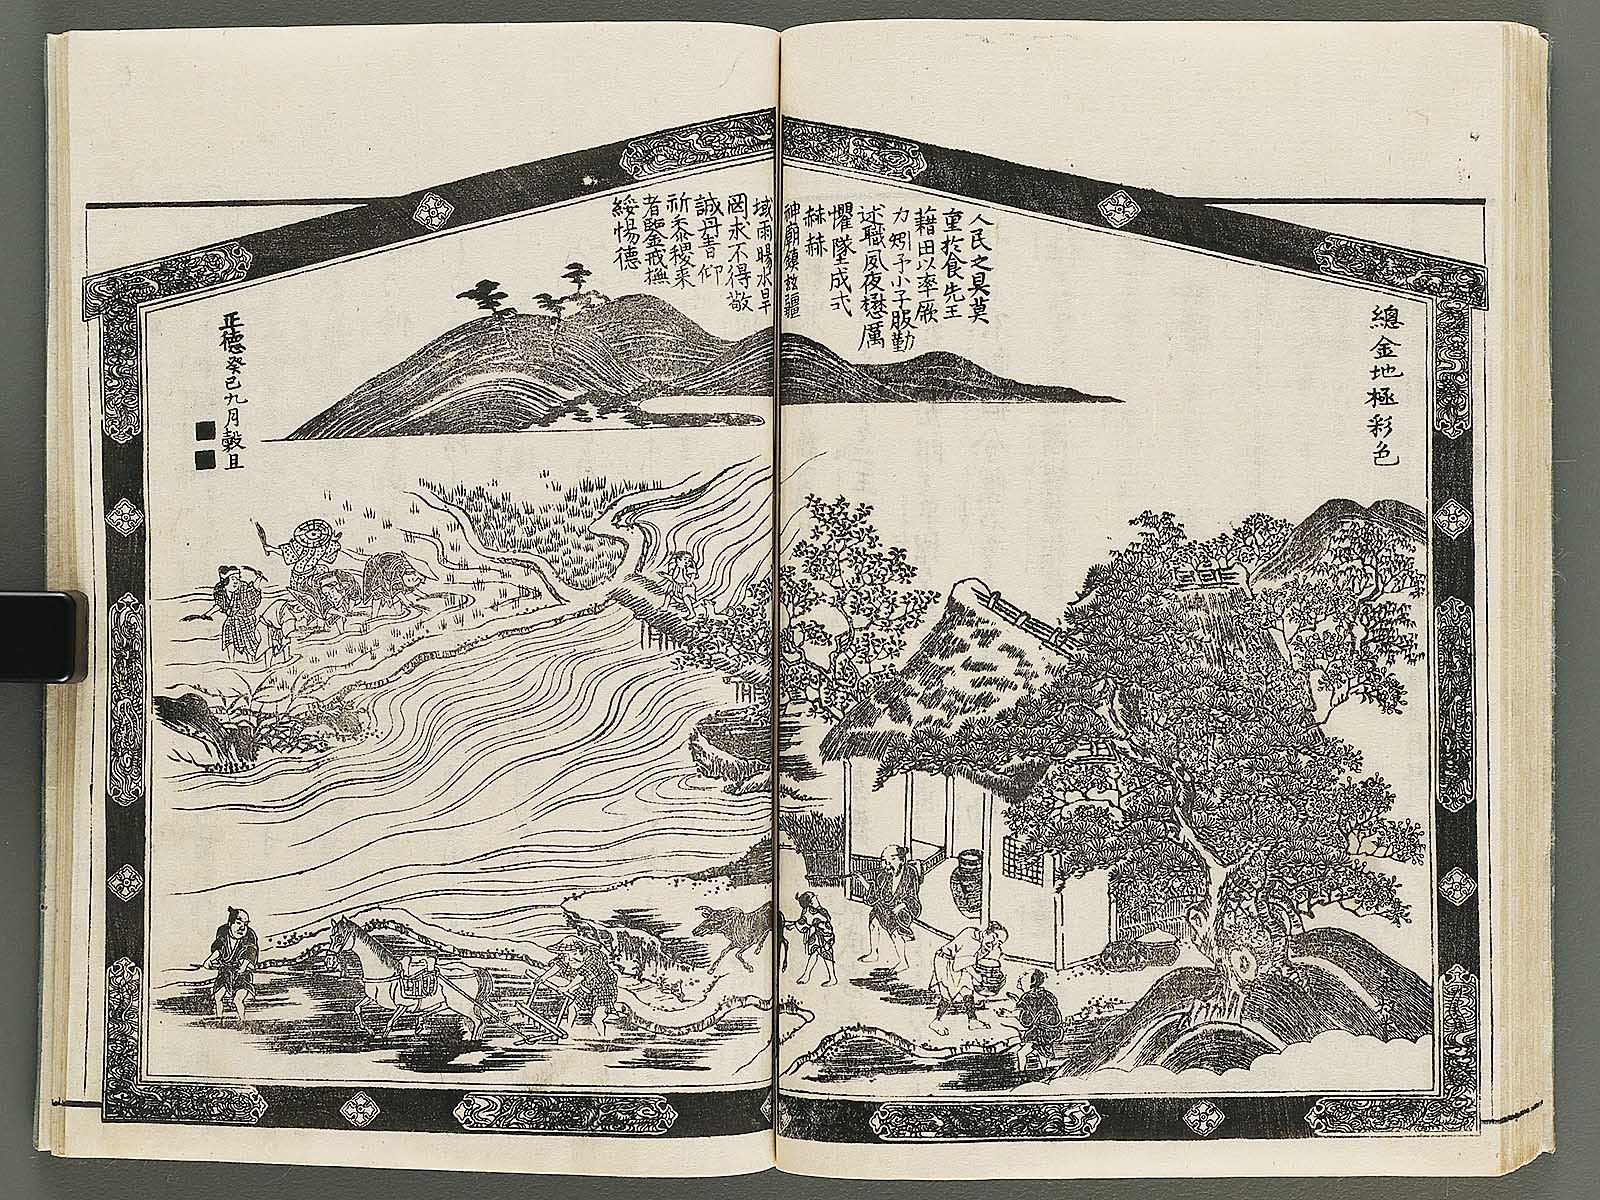 總金地極彩色
人民之具莫
重於食先王
藉田以率厥
力矧予小子服勤
述職夙夜懋厲
懼墜成式
赫赫
神廟鎮茲疆
域雨暘水旱
罔求不得敬
誠丹青仰
祈黍稷来
者鑒戒撫
綏惕德
正德癸巳九月穀旦